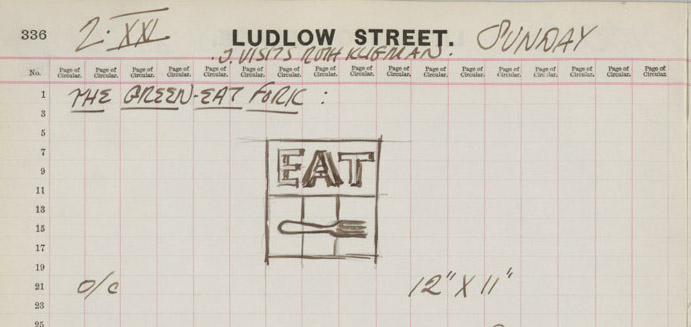 336 2·XXI LUDLOW STREET. SUNDAY
J. VISITS RUTH KLIGMAN.
No. Page of Circular. Page of Circular. Page of Circular. Page of Circular. Page of Circular. Page of Circular. Page of Circular. Page of Circular. Page of Circular. Page of Circular. Page of Circular. Page of Circular. Page of Circular. Page of Circular. Page of Circular. Page of Circular. Page of Circular.
1 THE GREEN-EAT FORK :
3
5
7 EAT
9
11
13
15
17
19
21 O/C 12" X 11"
23
25